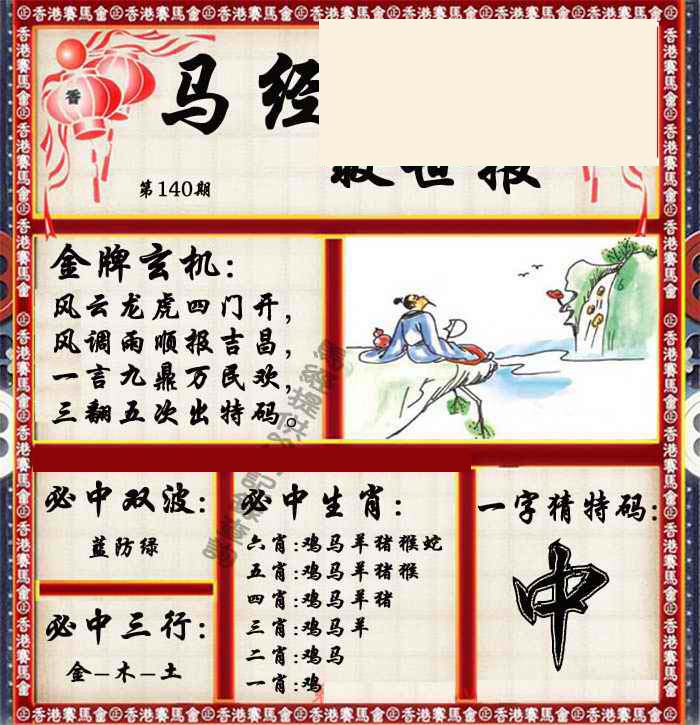 香港賽馬會
香
马经
救世报
第140期
金牌玄机:
风云龙虎四门开,
风调雨顺报吉昌,
一言九鼎万民欢,
三翻五次出特码。
必中双波:
蓝防绿
必中三行:
金-木-土
必中生肖:
六肖:鸡马羊猪猴蛇
五肖:鸡马羊猪猴
四肖:鸡马羊猪
三肖:鸡马羊
二肖:鸡马
一肖:鸡
一字猜特码:
中